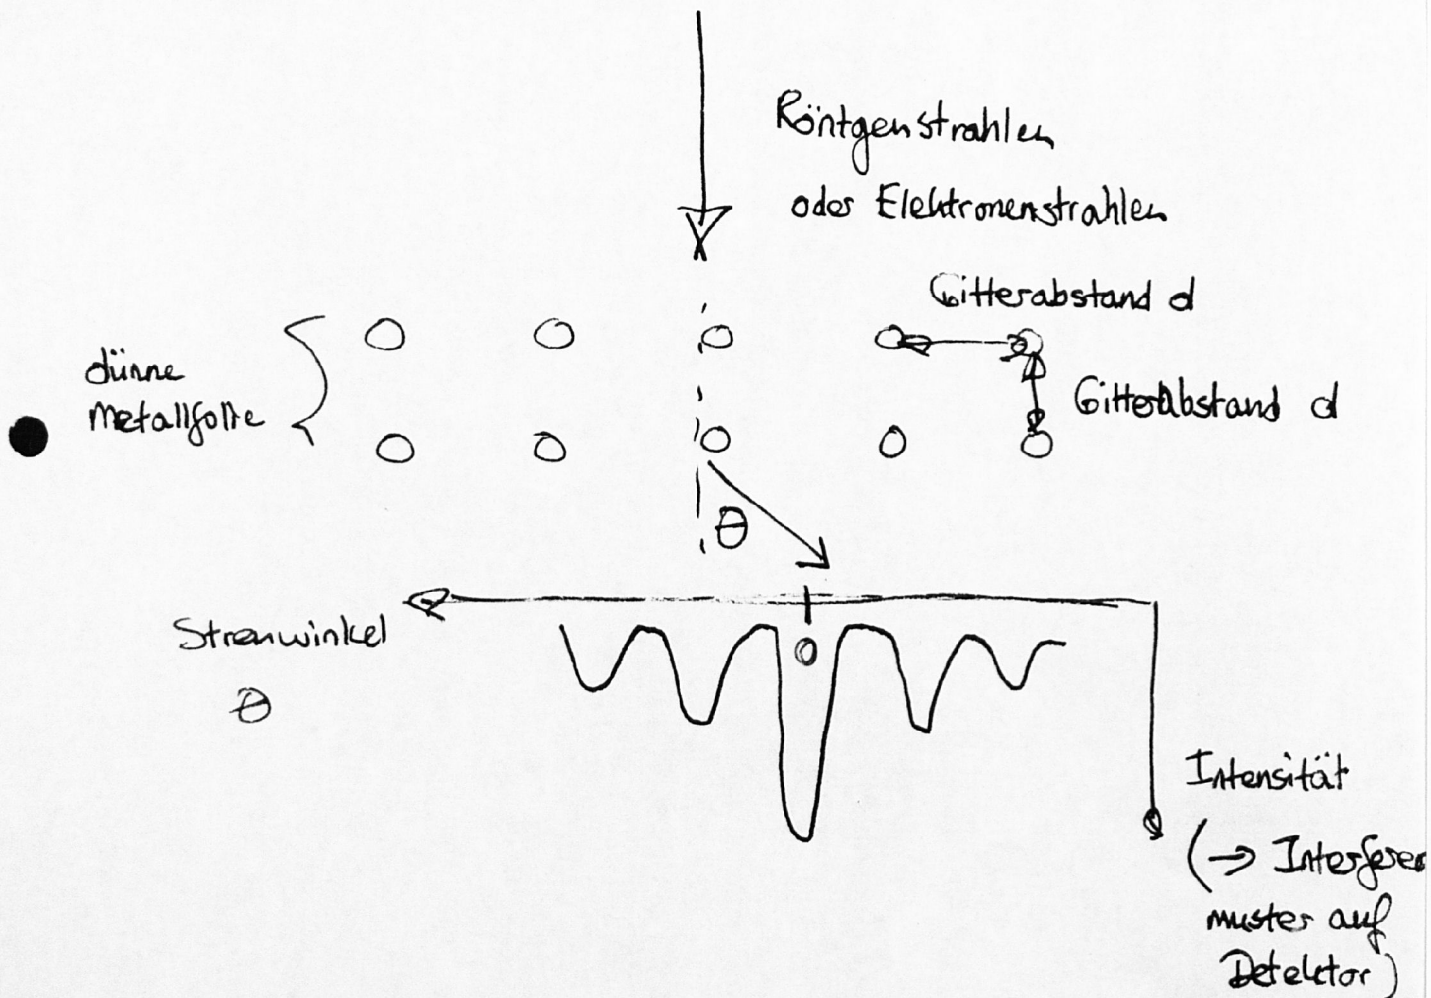 Röntgenstrahlen
oder Elektronenstrahlen
Gitterabstand d
dünne
Metallfolie
Gitterabstand d
θ
Streuwinkel
θ
0
Intensität
(→ Interferenz
muster auf
Detektor)